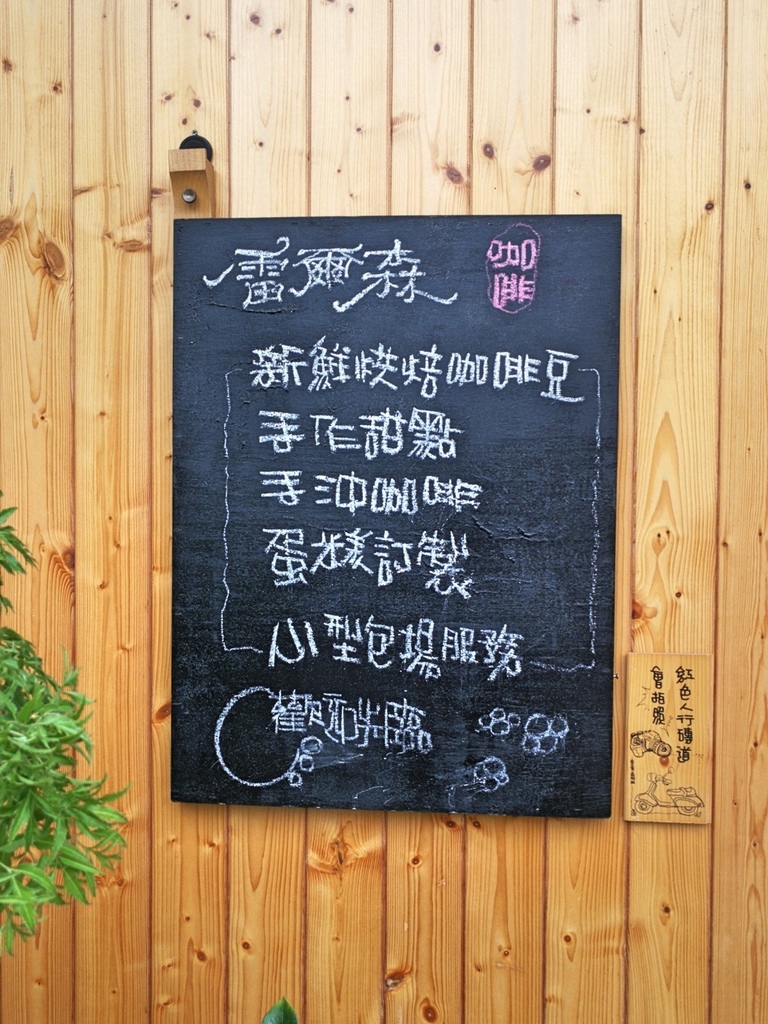 雷爾森 咖啡
新鮮烘焙咖啡豆
手作甜點
手沖咖啡
蛋糕訂製
小型包場服務
歡迎光臨
紅色人行磚道
會拍照